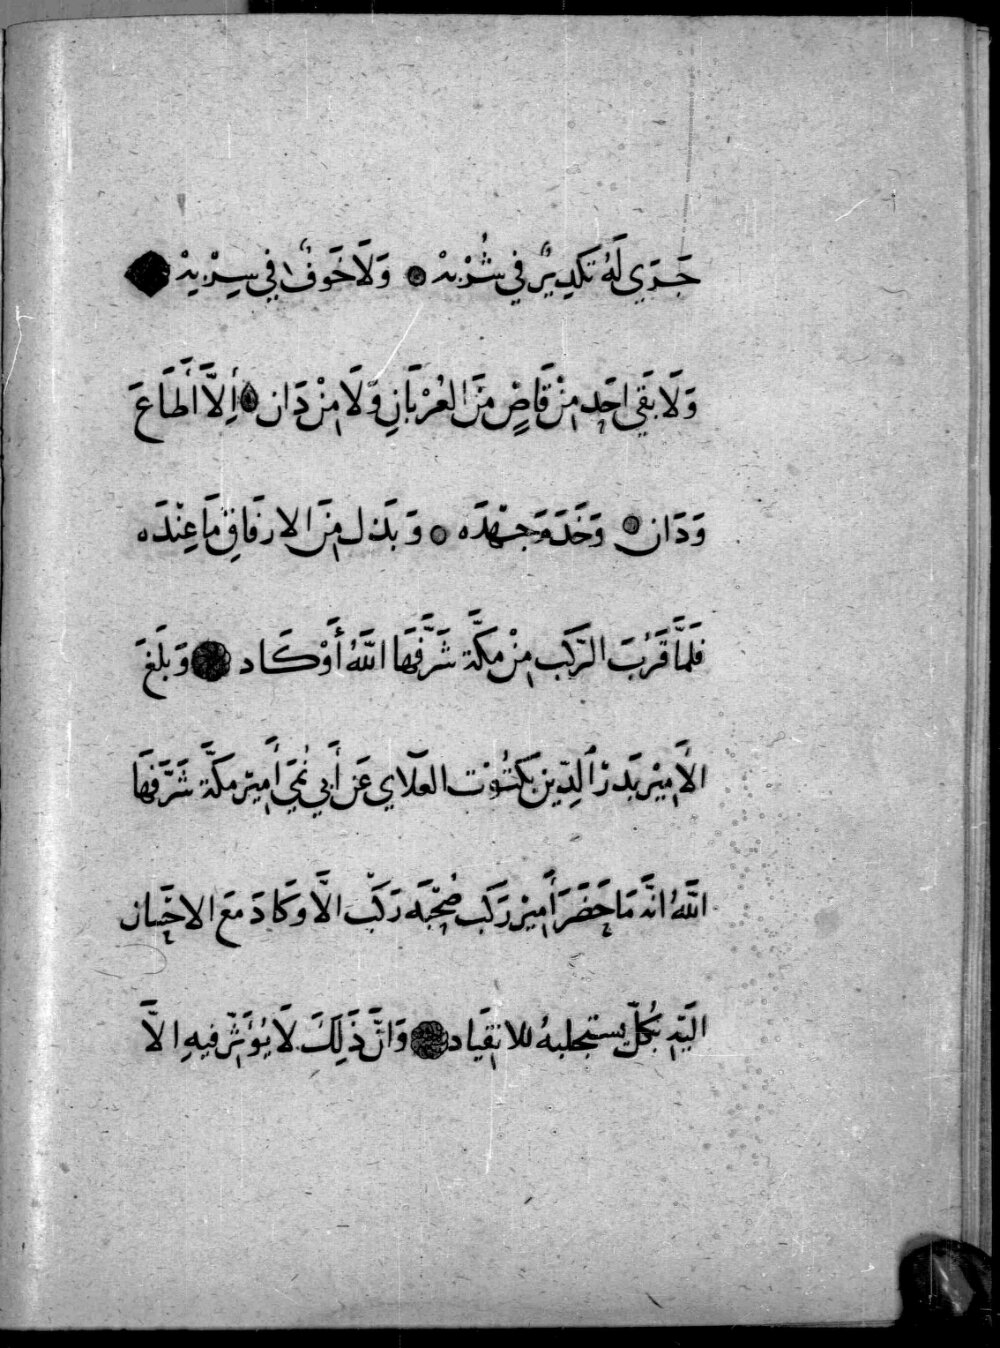 جَرَي لَهُ تَكدِيرٌ في شُرْبِهْ ۞ وَلَا خَوفٌ في سِرْبِهْ ۞
وَلَا بَقي احَد مِنْ قَاضٍ مِنَ العُرْبَانِ وَلَا مِنْ دَان ۞ إلاَّ أَطَاعَ
وَدَان ۞ وَخَدَمَ جهْدَه ۞ وَبَذل مِنَ الارفَاقِ مَا عِنْدَه
فَلَمَّا قَرُبَ الرّكَب مِنْ مكَّة شَرَّفَهَا اللَّهُ أَوْ كَاد ۞ وَبَلَغَ
الأَمِيْر بَدرْ الدِّين بَكتُوْت العلآي عَن أَبي نُمَي أَمِير مكَّة شَرَّفهَا
اللَّهُ انَّه مَا حَضَرَ أَمِيْر رَكب صُحْبَه رَكْب الَّا وَكَادَ مَعَ الاخبار
اليَه بكُلّ يستجلبهُ للانقيَاد ۞ وَانَّ ذَلِكَ لَا يُؤَثّر فيهِ الاَّ